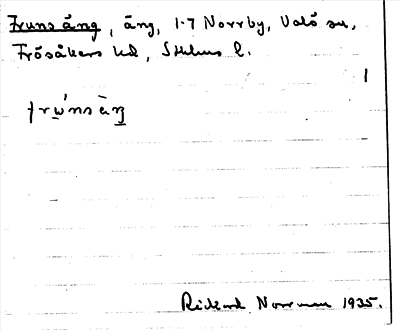 Frunsäng, äng, 1-7 Norrby, Valö sn,
Frösåkers hd, Sthlms l.
1
frẃnsä̀ŋ
Rickard Norrman 1935.